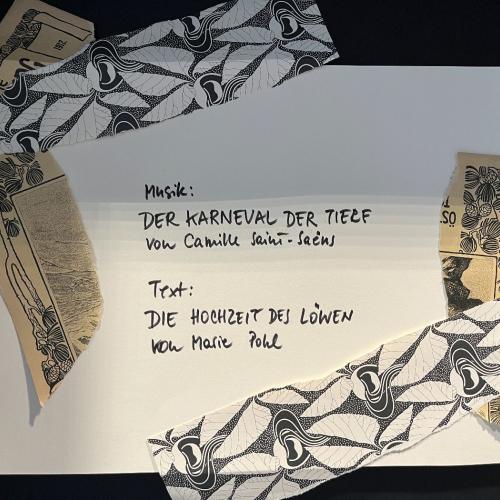 Musik:
DER KARNEVAL DER TIERE
von Camille Saint-Saëns
Text:
DIE HOCHZEIT DES LÖWEN
von Marie Pohl